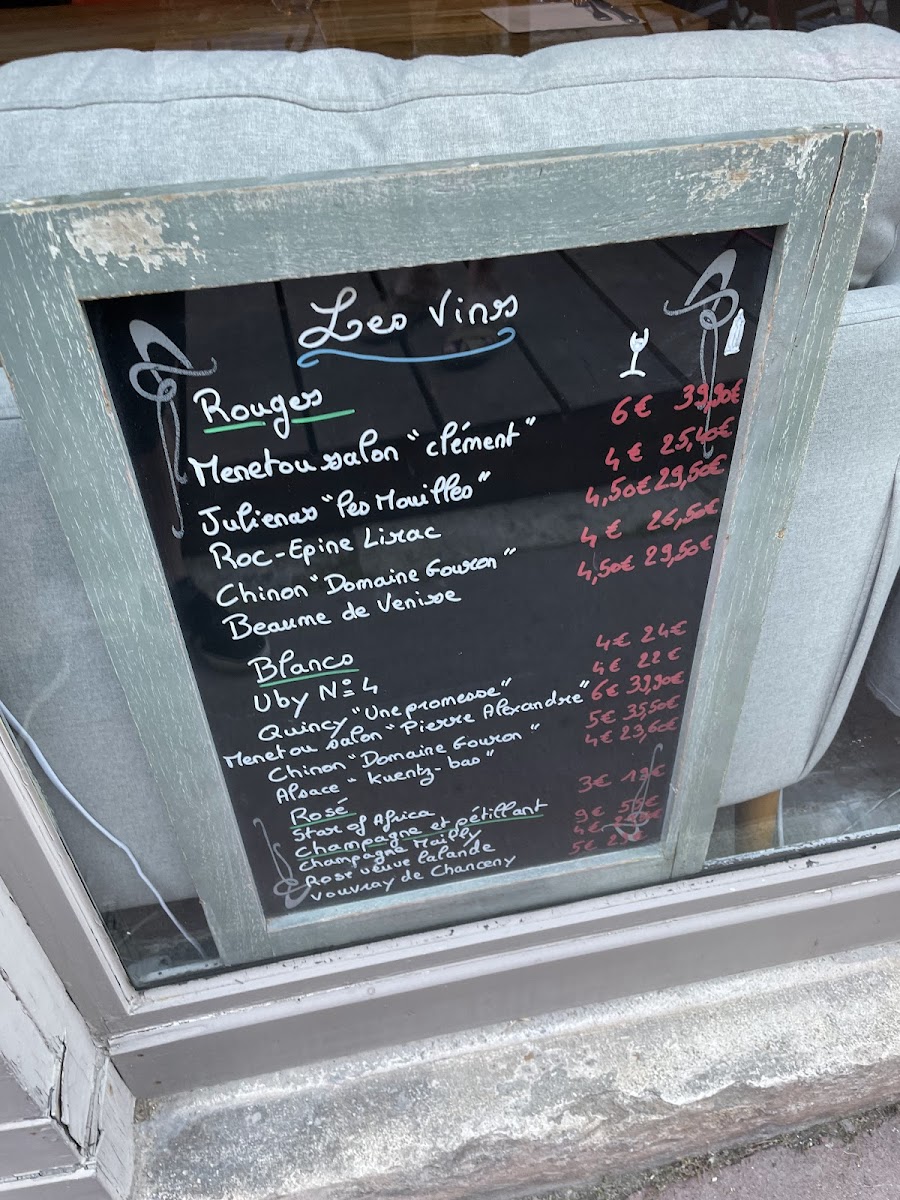 Les Vins
Rouges
Menetou salon "clément" 6€ 39,90€
Julienas "les Mouilles" 4€ 25,40€
Roc-Epine Lirac 4,50€ 29,50€
Chinon "Domaine Gouron" 4€ 26,50€
Beaume de Venisse 4,50€ 29,50€
Blancs
Uby N° 4 4€ 24€
Quincy "Une promesse" 4€ 22€
Menetou salon "Pierre Alexandre" 6€ 39,90€
Chinon "Domaine Gouron" 5€ 35,50€
Alsace "Kuentz-bas" 4€ 23,60€
Rosé
Star of Africa 3€
Champagne et pétillant
Champagne Mailly 9€
Rosé veuve lalande 4€
Vouvray de Chanceny 5€